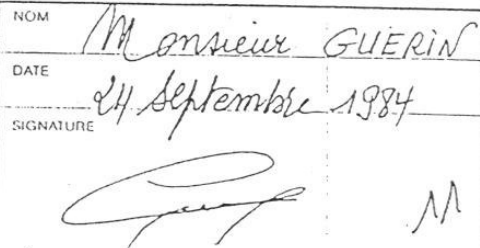 NOM
Monsieur GUERIN
DATE
24 Septembre 1984
SIGNATURE
11